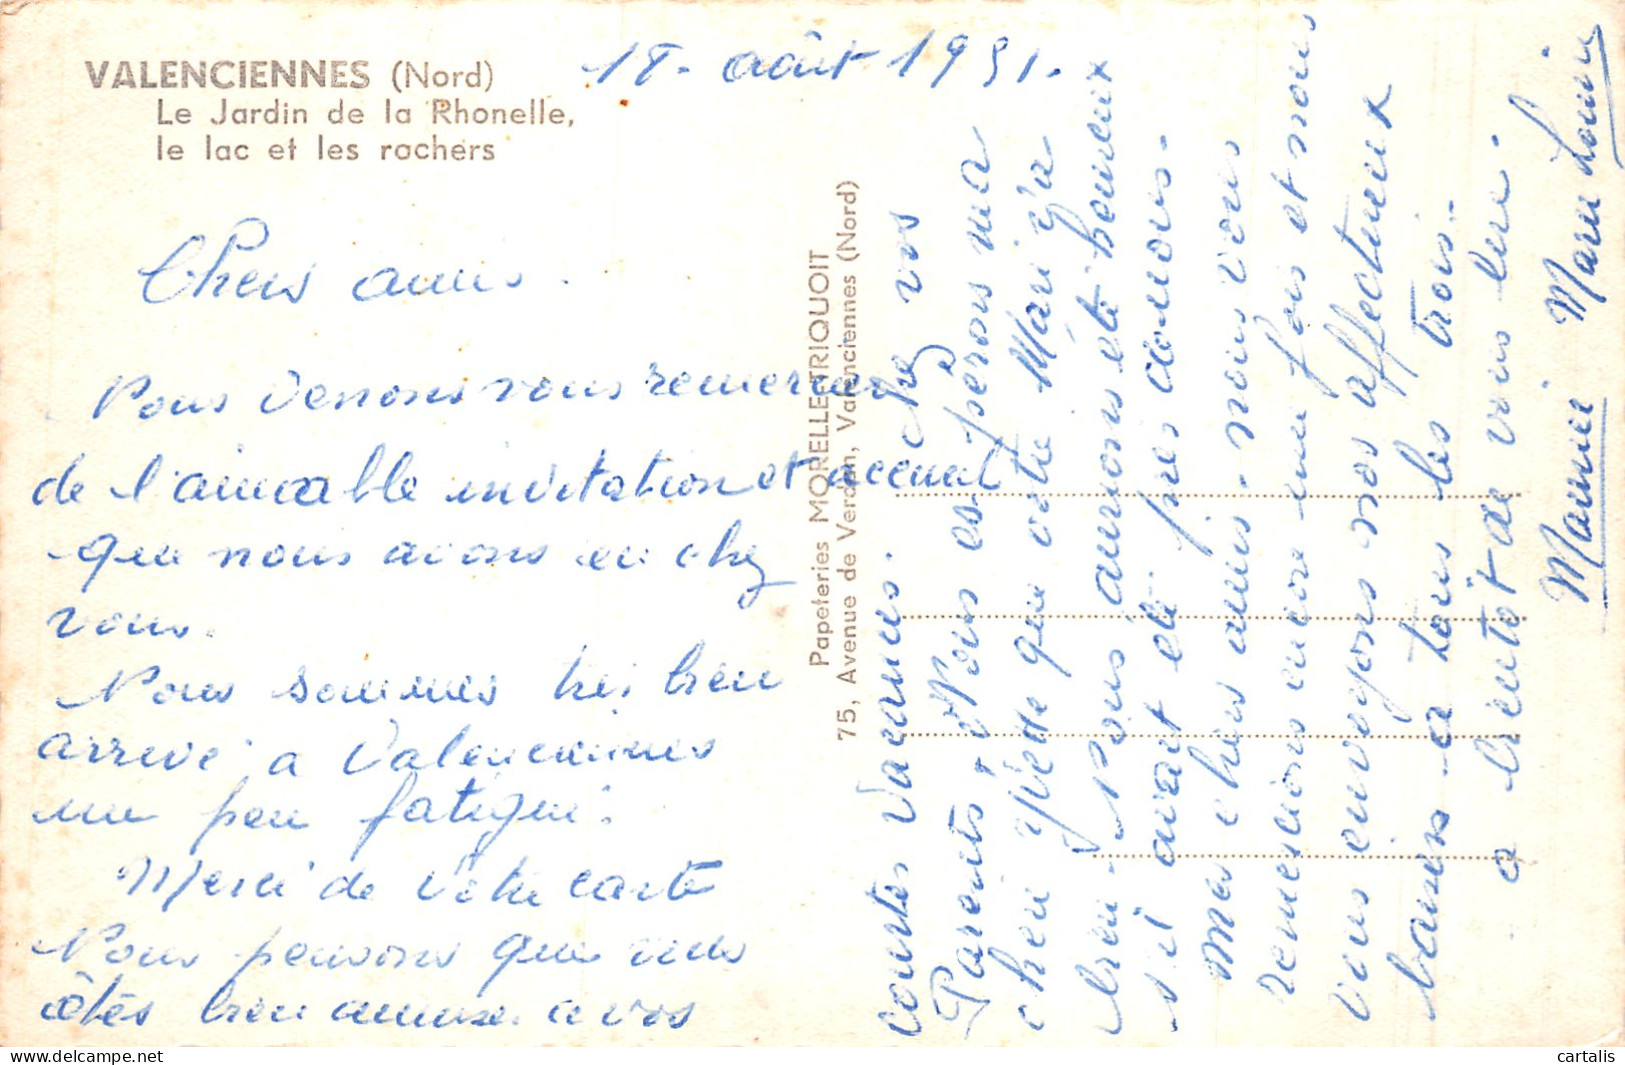 VALENCIENNES (Nord)
Le Jardin de la Rhonelle,
le lac et les rochers
18. août 1951.
Chers amis.
Nous venons vous remercier
de l'aimable invitation et accueil
que nous avons eu chez
vous.
Nous sommes très bien
arrivé à Valenciennes
un peu fatigué.
Merci de votre carte
Nous pensons que vous
êtes bien amuser a vos
Papeteries MORELLE-TRIQUOIT
75, Avenue de Verdun, Valenciennes (Nord)
courtes vacances. chez vos
Parents, Nous espérons ma
cher que votre Mari a
bien. Nous aurions été heureux
s'il avait été près de nous.
Mes chers amis. nous vous
remercions encore une fois et nous
vous envoyons nos affectueux
baisers a tous les trois.
a bientôt de vous lire.
Mamie. Marie Louise
cartalis